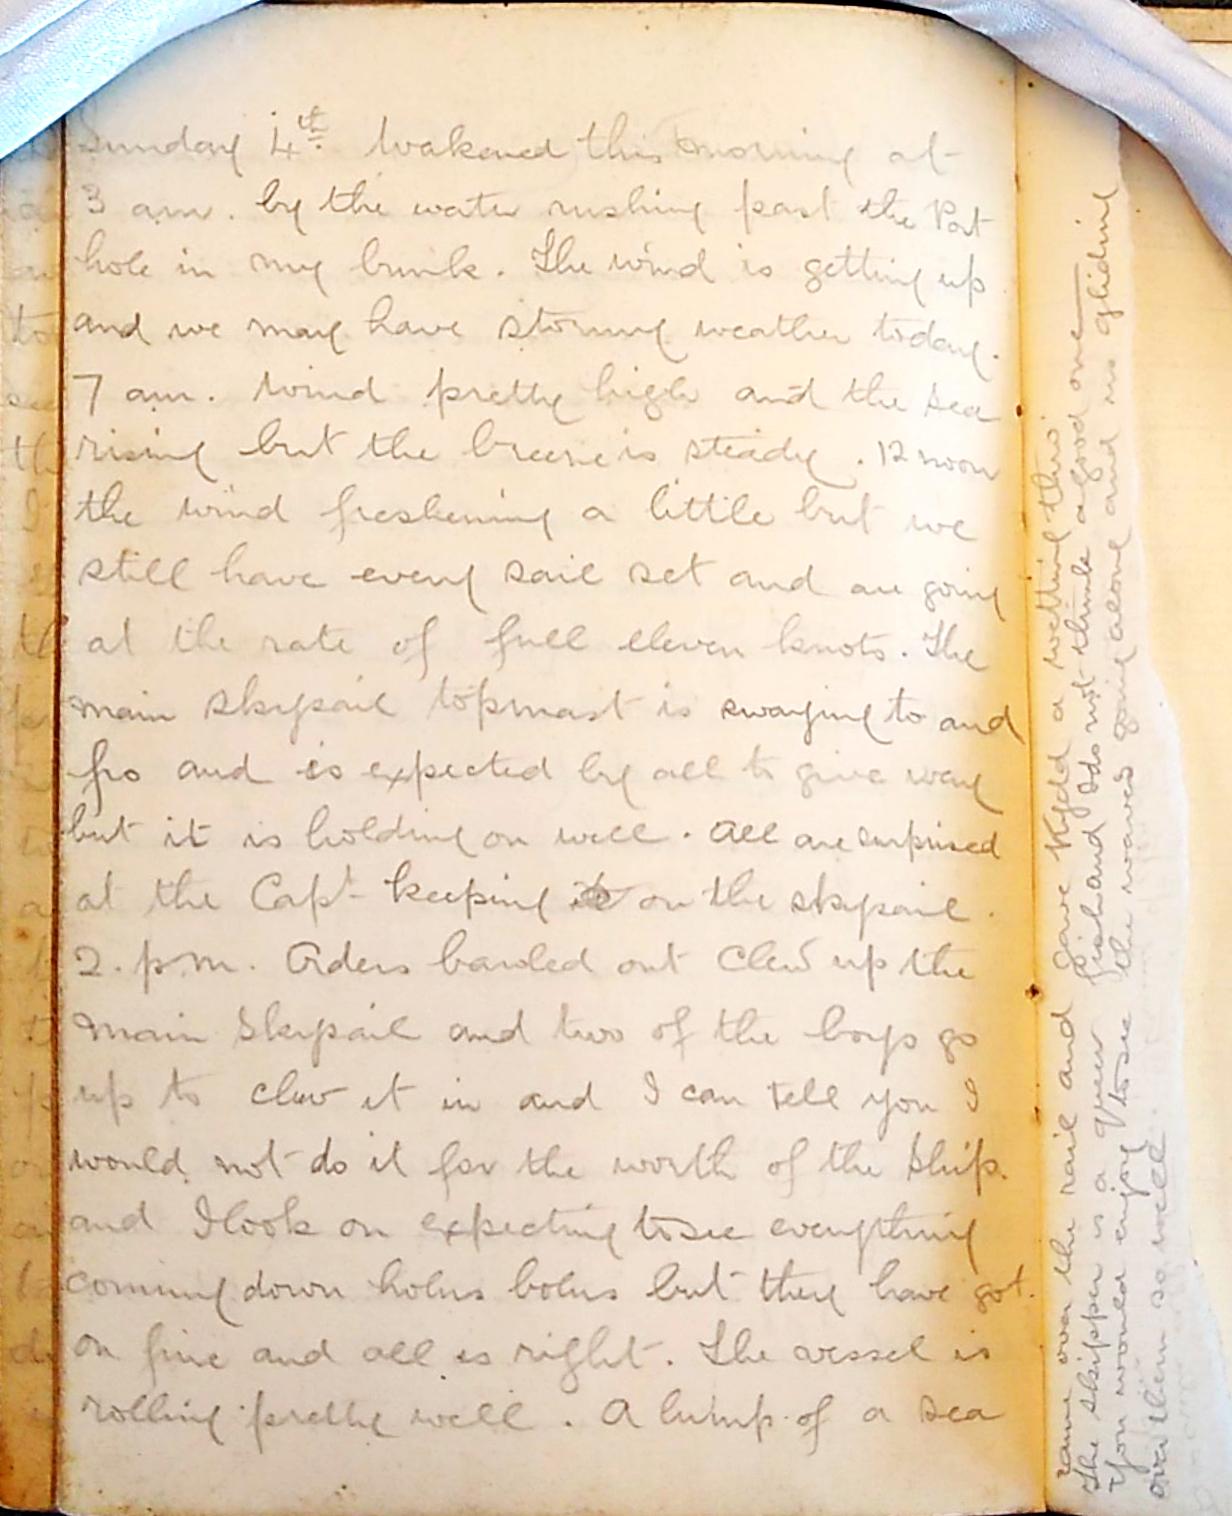 Sunday 4th. Wakened this morning at
3 am. by the water rushing past the Port
hole in my bunk. The wind is getting up
and we may have stormy weather today.
7 am. Wind pretty high and the sea
rising but the breeze is steady. 12 noon
the wind freshening a little but we
still have every sail set and are going
at the rate of full eleven knots. The
main skysail topmast is swaying to and
fro and is expected by all to give way
but it is holding on well. All are surprised
at the Capt keeping on the skysail.
2. p.m. Oders bawled out Clew up the
Main Skysail and two of the boys go
up to clew it in and I can tell you I
would not do it for the worth of the Ship.
and I look on expecting to see everything
coming down holus bolus but they have got
on fine and all is right. The vessel is
rolling pretty well. A lump of a sea
came over the rail and gave Kydd a wetting this
The skipper is a queer fish and I do not think a good one
You would enjoy to see the waves going along and us gliding
over them so well